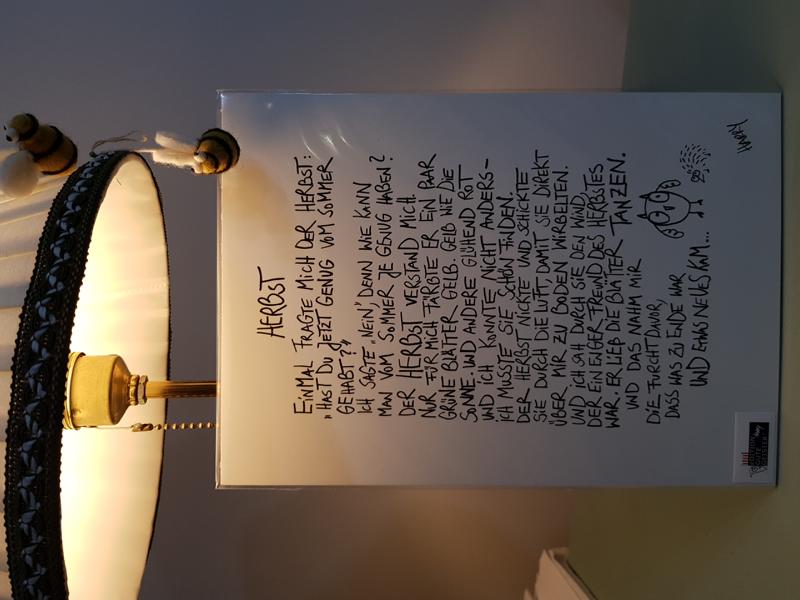 HERBST
EINMAL FRAGTE MICH DER HERBST:
„HAST DU JETZT GENUG VOM SOMMER
GEHABT?"
ICH SAGTE „NEIN", DENN WIE KANN
MAN VOM SOMMER JE GENUG HABEN?
DER HERBST VERSTAND MICH.
NUR FÜR MICH FÄRBTE ER EIN PAAR
GRÜNE BLÄTTER GELB. GELB WIE DIE
SONNE. UND ANDERE GLÜHEND ROT
UND ICH KONNTE NICHT ANDERS–
ICH MUSSTE SIE SCHÖN FINDEN.
DER HERBST NICKTE UND SCHICKTE
SIE DURCH DIE LUFT, DAMIT SIE DIREKT
ÜBER MIR ZU BODEN WIRBELTEN.
UND ICH SAH DURCH SIE DEN WIND,
DER EIN ENGER FREUND DES HERBSTES
WAR. ER LIEß DIE BLÄTTER TANZEN.
UND DAS NAHM MIR
DIE FURCHT DAVOR,
DASS WAS ZU ENDE WAR
UND ETWAS NEUES KAM...
HARRY
EDITION
GUTE
GEISTER